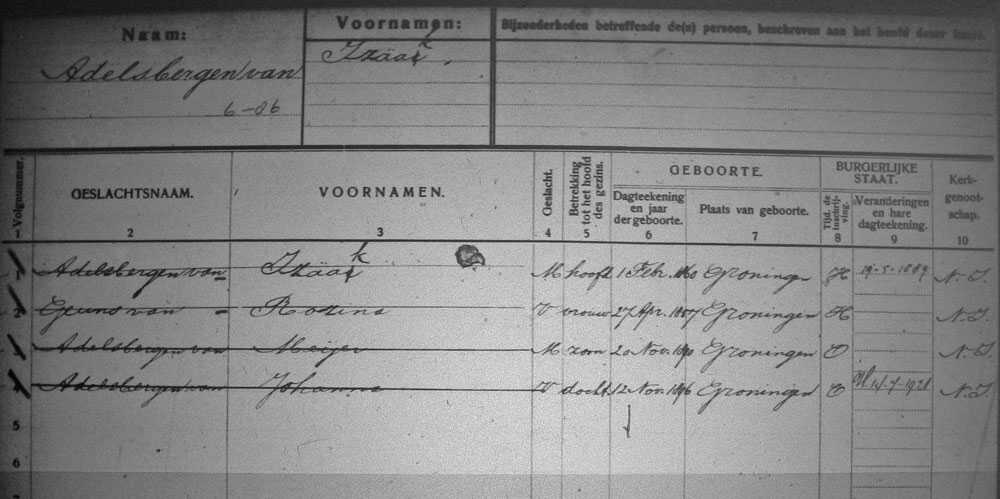 Naam:
Voornamen:
Bijzonderheden betreffende de(n) persoon, beschreven aan het hoofd dezer kaart.
Adelsbergen van
Izäak.
6-06
Volgnummer.
GESLACHTSNAAM.
VOORNAMEN.
Geslacht.
Betrekking tot het hoofd des gezins.
GEBOORTE.
Dagteekening en jaar der geboorte.
Plaats van geboorte.
BURGERLIJKE STAAT.
Tijd. de inschrijving.
Veranderingen en hare dagteekening.
Kerkgenootschap.
1 2 3 4 5 6 7 8 9 10
Adelsbergen van Izäak M hoofd 1 Febr. 1860 Groningen H 19-5-1889 N.I.
van Rosina V vrouw 27 Apr. Groningen H N.I.
Adelsbergen van Meijer M zoon 20 Nov. 1890 Groningen O N.I.
Adelsbergen van Johanna V docht. 12 Nov. 1896 Groningen O H 14-7-1921 N.I.
5
6